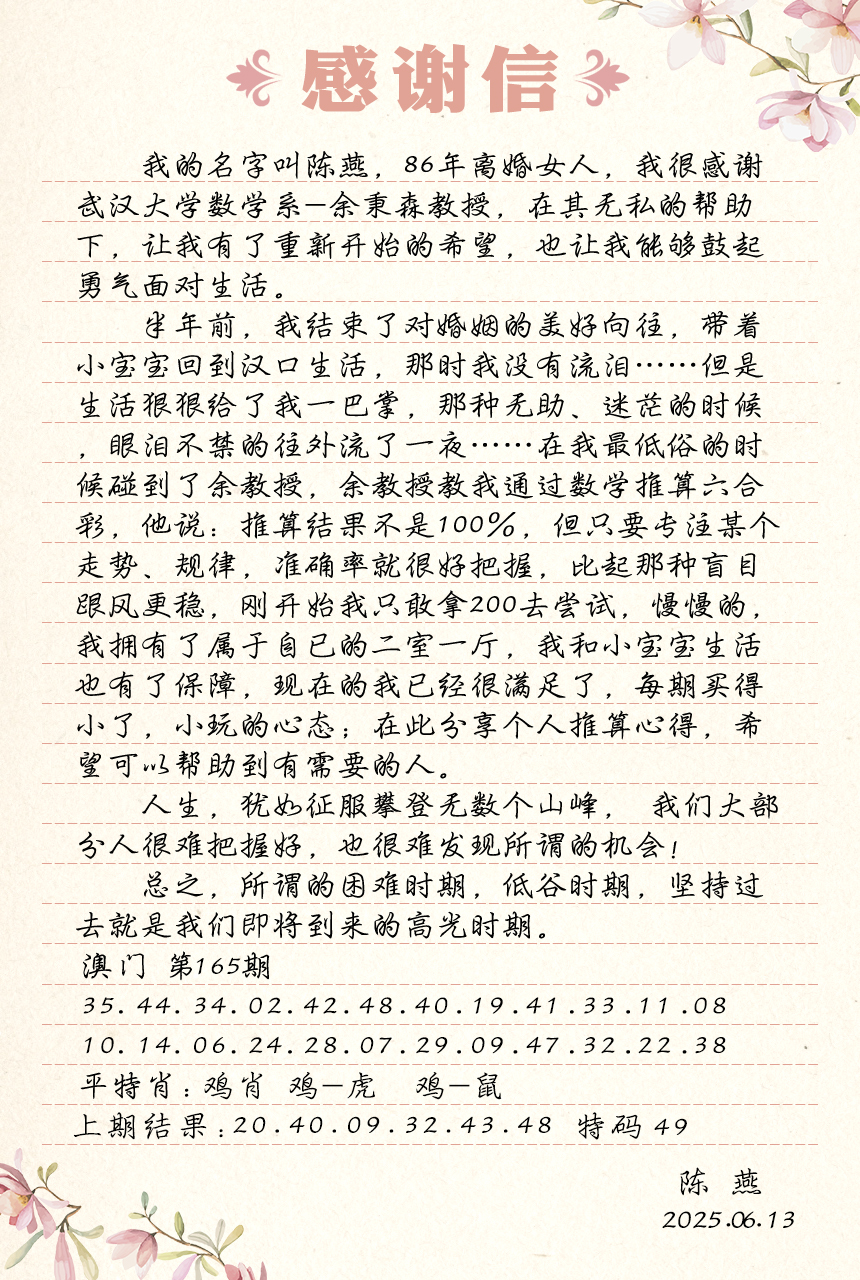 感谢信
我的名字叫陈燕，86年离婚女人，我很感谢
武汉大学数学系-余秉森教授，在其无私的帮助
下，让我有了重新开始的希望，也让我能够鼓起
勇气面对生活。
半年前，我结束了对婚姻的美好向往，带着
小宝宝回到汉口生活，那时我没有流泪……但是
生活狠狠给了我一巴掌，那种无助、迷茫的时候
，眼泪不禁的往外流了一夜……在我最低俗的时
候碰到了余教授，余教授教我通过数学推算六合
彩，他说：推算结果不是100%，但只要专注某个
走势、规律，准确率就很好把握，比起那种盲目
跟风更稳，刚开始我只敢拿200去尝试，慢慢的，
我拥有了属于自已的二室一厅，我和小宝宝生活
也有了保障，现在的我已经很满足了，每期买得
小了，小玩的心态；在此分享个人推算心得，希
望可以帮助到有需要的人。
人生，犹如征服攀登无数个山峰， 我们大部
分人很难把握好，也很难发现所谓的机会！
总之，所谓的困难时期，低谷时期，坚持过
去就是我们即将到来的高光时期。
澳门 第165期
35.44.34.02.42.48.40.19.41.33.11.08
10.14.06.24.28.07.29.09.47.32.22.38
平特肖：鸡肖 鸡-虎 鸡-鼠
上期结果：20.40.09.32.43.48 特码 49
陈 燕
2025.06.13